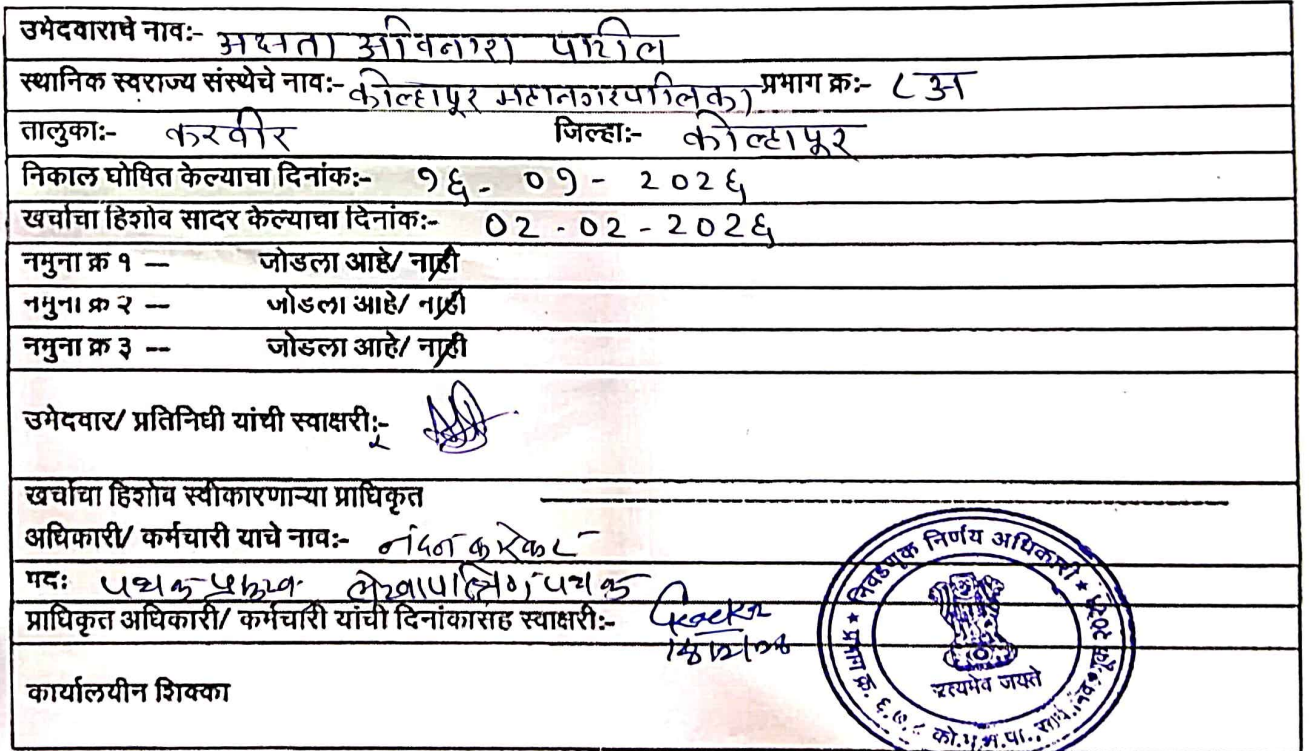 उमेदवाराचे नाव:- अक्षता अविनाश पाटील
स्थानिक स्वराज्य संस्थेचे नाव:- कोल्हापूर महानगरपालिका प्रभाग क्र:- ८अ
तालुका:- करवीर जिल्हा:- कोल्हापूर
निकाल घोषित केल्याचा दिनांक:- १६-०१-२०२६
खर्चाचा हिशोब सादर केल्याचा दिनांक:- ०२-०२-२०२६
नमुना क्र १ -- जोडला आहे/ नाही
नमुना क्र २ -- जोडला आहे/ नाही
नमुना क्र ३ -- जोडला आहे/ नाही
उमेदवार/ प्रतिनिधी यांची स्वाक्षरी:-
खर्चाचा हिशोब स्वीकारणाऱ्या प्राधिकृत
अधिकारी/ कर्मचारी याचे नाव:- नंदन कारेकर
पद: पथक प्रमुख पथक
प्राधिकृत अधिकारी/ कर्मचारी यांची दिनांकासह स्वाक्षरी:-
कार्यालयीन शिक्का
निवडणूक निर्णय अधिकारी
सत्यमेव जयते
प्रभाग क्र. ६,७,८ को.म.न.पा.